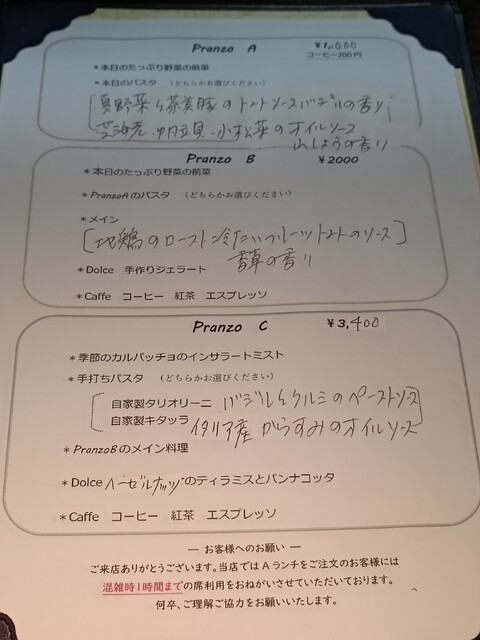 Pranzo A ¥1,000
コーヒー200円
＊本日のたっぷり野菜の前菜
＊本日のパスタ （どちらかお選びください）
夏野菜と茶美豚のトマトソース バジルの香り
小松菜のオイルソース
山しょうの香り
Pranzo B ¥2000
＊本日のたっぷり野菜の前菜
＊PranzoAのパスタ （どちらかお選びください）
＊メイン
地鶏のロースト 冷たいフルーツトマトのソース
香草の香り
＊Dolce 手作りジェラート
＊Caffe コーヒー 紅茶 エスプレッソ
Pranzo C ¥3,400
＊季節のカルパッチョのインサラートミスト
＊手打ちパスタ （どちらかお選びください）
自家製タリオリーニ バジルとクルミのペーストソース
自家製キタッラ イタリア産 からすみのオイルソース
＊PranzoBのメイン料理
＊Dolce ヘーゼルナッツのティラミスとパンナコッタ
＊Caffe コーヒー 紅茶 エスプレッソ
― お客様へのお願い ―
ご来店ありがとうございます。当店ではAランチをご注文のお客様には
混雑時1時間までの席利用をおねがいさせていただいております。
何卒、ご理解ご協力をお願いいたします。